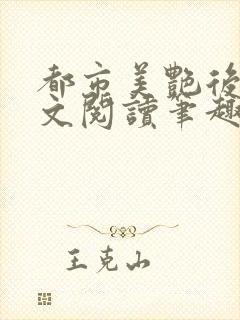 都市美艷後
文閱讀筆趣
王克山